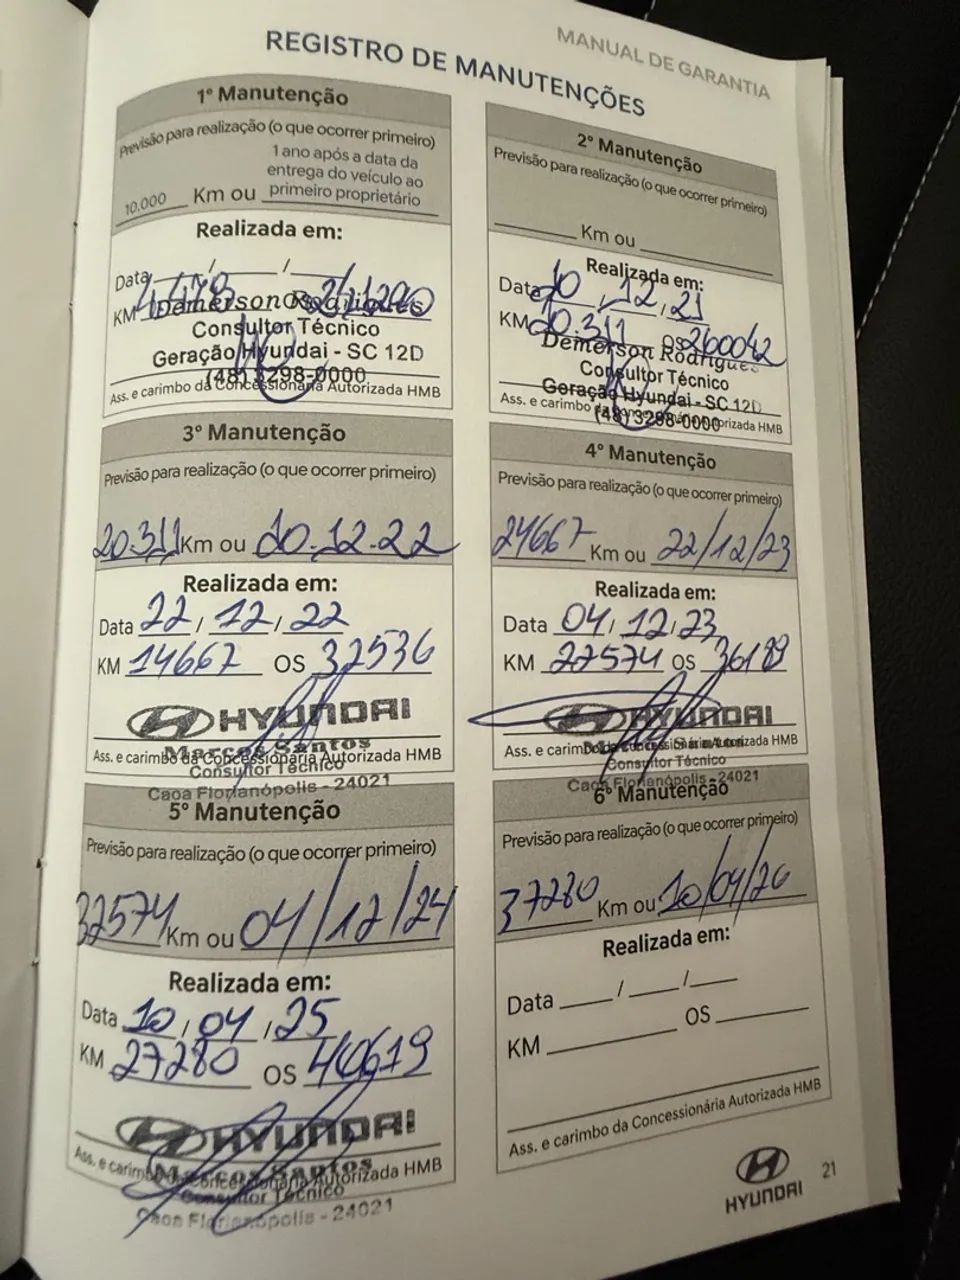 MANUAL DE GARANTIA
REGISTRO DE MANUTENÇÕES
1º Manutenção
Previsão para realização (o que ocorrer primeiro)
10.000 Km ou 1 ano após a data da
entrega do veículo ao
primeiro proprietário
Realizada em:
Data / /
KM
Demerson Rodrigues
Consultor Técnico
Geração Hyundai - SC 12D
(48) 3298-0000
Ass. e carimbo da Concessionária Autorizada HMB
2º Manutenção
Previsão para realização (o que ocorrer primeiro)
Km ou
Realizada em:
Data 10 / 12 / 21
KM 10.311 OS 260042
Demerson Rodrigues
Consultor Técnico
Geração Hyundai - SC 12D
(48) 3298-0000
Ass. e carimbo da Concessionária Autorizada HMB
3º Manutenção
Previsão para realização (o que ocorrer primeiro)
20.311 Km ou 10.12.22
Realizada em:
Data 22 / 12 / 22
KM 14667 OS 32536
HYUNDAI
Marcos Santos
Ass. e carimbo da Concessionária Autorizada HMB
Consultor Técnico
Caoa Florianópolis - 24021
4º Manutenção
Previsão para realização (o que ocorrer primeiro)
24667 Km ou 22/12/23
Realizada em:
Data 04 / 12 / 23
KM 22574 OS
HYUNDAI
Ass. e carimbo da Concessionária Autorizada HMB
Consultor Técnico
Caoa Florianópolis - 24021
5º Manutenção
Previsão para realização (o que ocorrer primeiro)
32574 Km ou 04/12/24
Realizada em:
Data 10 / 04 / 25
KM 27280 OS 40619
HYUNDAI
Marcos Santos
Ass. e carimbo da Concessionária Autorizada HMB
Consultor Técnico
Caoa Florianópolis - 24021
6º Manutenção
Previsão para realização (o que ocorrer primeiro)
37280 Km ou 10/04/26
Realizada em:
Data / /
KM OS
Ass. e carimbo da Concessionária Autorizada HMB
HYUNDAI
21